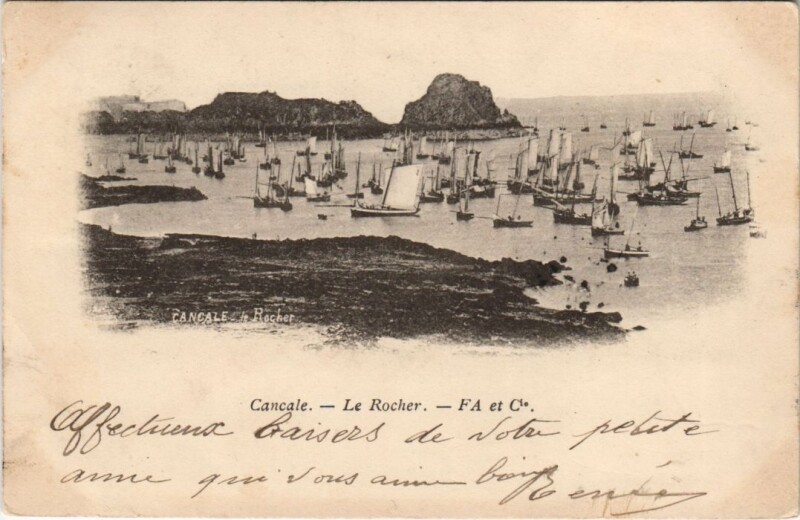 CANCALE _ le Rocher
Cancale. — Le Rocher. — FA et Cie.
Affectueux baisers de votre petite
amie qui vous aime bien Renée